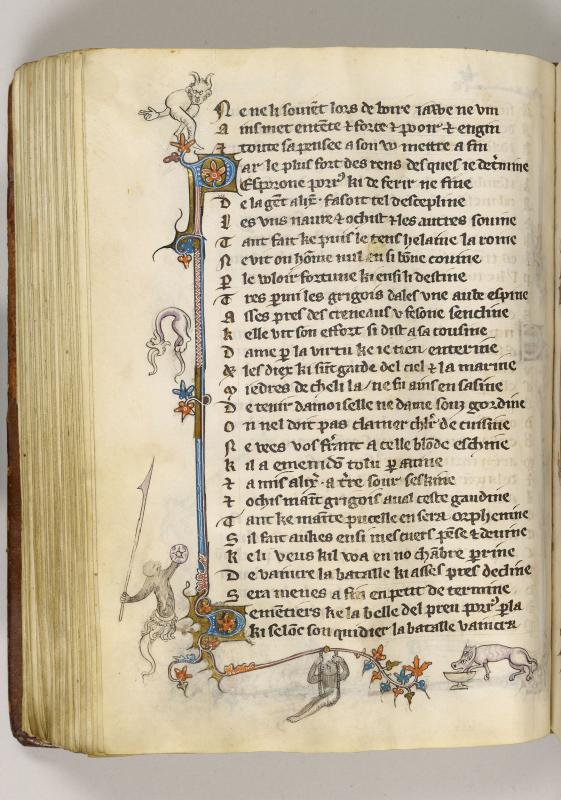 N e ne li souiēt lors de boire
A ins met entēte ⁊ force ⁊ pooir ⁊ engin
⁊ toute sa pensee a son vo mettre a fin
Par le plus fort des rens des ques ie det̄mine
Esporone porr᷒ ki de ferir ne fine
D e la gēt alix̄. fasoit tel descepline
L es vns naure ⁊ ochist ⁊ les autres souine
T ant fait ke puis le tens helaine la roine
N e vit on hōme nul en si bōne couine
P le voloir fortune ki ensi li destine
T res p̱mi les grigois dales vne aube espine
A sses pres des creneaus v fesone senchine
K elle vit son effort si dist a sa cousine
D ame p̱ la virtu ke ie tieu enterine
⁊ les diex ki sūt garde del ciel ⁊ la marine
D e tenir damoiselle ne dame souz gordine
O n nel doit pas clamer chlr̄ de cuisine
N e vees vos a celle blōde eschine
K il a emenidō tolu
⁊ a mis alix̄. a t̄re sour seskine
⁊ ochis maīt grigois aual ceste gaudine
T ant ke mainte pucelle en sera orphenine
S il fait aukes ensi mescuers pēse ⁊ deuine
K e li veus kil voa en no chābre p̱rine
D e vaincre la batalle ki asses pres decline
S era menes a fin en petit de termine
Dementiers ke la belle del preu porr᷒ p̱la
ki selōc son quidier la batalle vaincra